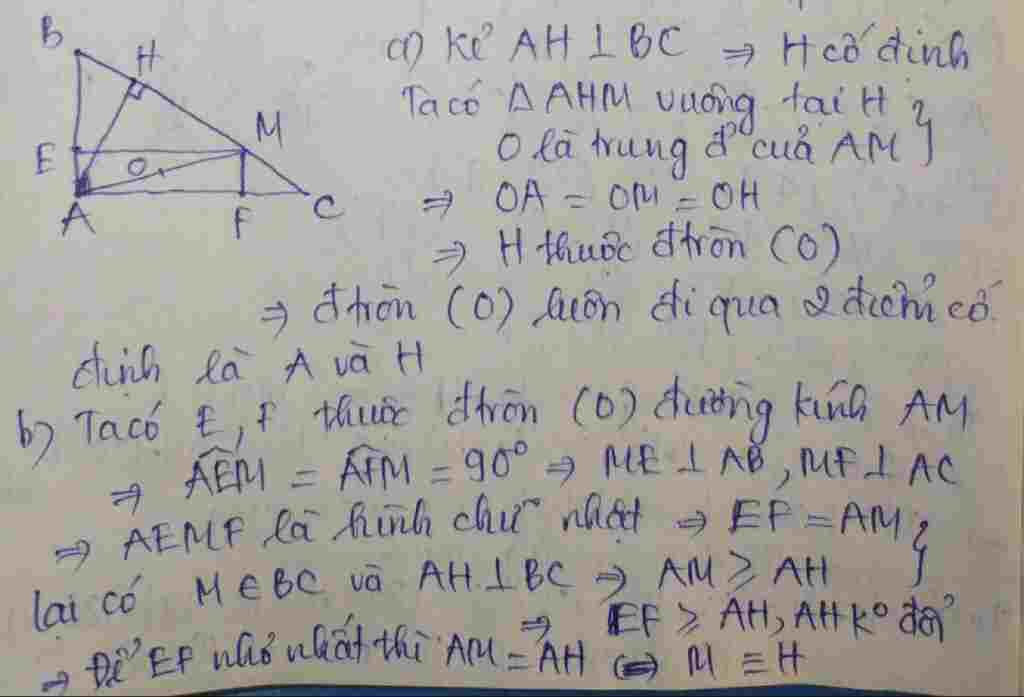 B
H
M
E
O
A
F
C
a) Kẻ AH ⊥ BC ⇒ H cố định
Ta có Δ AHM vuông tại H }
O là trung đ' của AM
⇒ OA = OM = OH
⇒ H thuộc đtròn (O)
⇒ đtròn (O) luôn đi qua 2 điểm cố
định là A và H
b) Ta có E, F thuộc đtròn (O) đường kính AM
⇒ \widehat{AEM} = \widehat{AFM} = 90° ⇒ ME ⊥ AB, MF ⊥ AC
⇒ AEMF là hình chữ nhật ⇒ EF = AM }
lại có M ∈ BC và AH ⊥ BC ⇒ AM ≥ AH
⇒ EF ≥ AH, AH k° đổi
⇒ Để EF nhỏ nhất thì AM = AH ⇔ M ≡ H